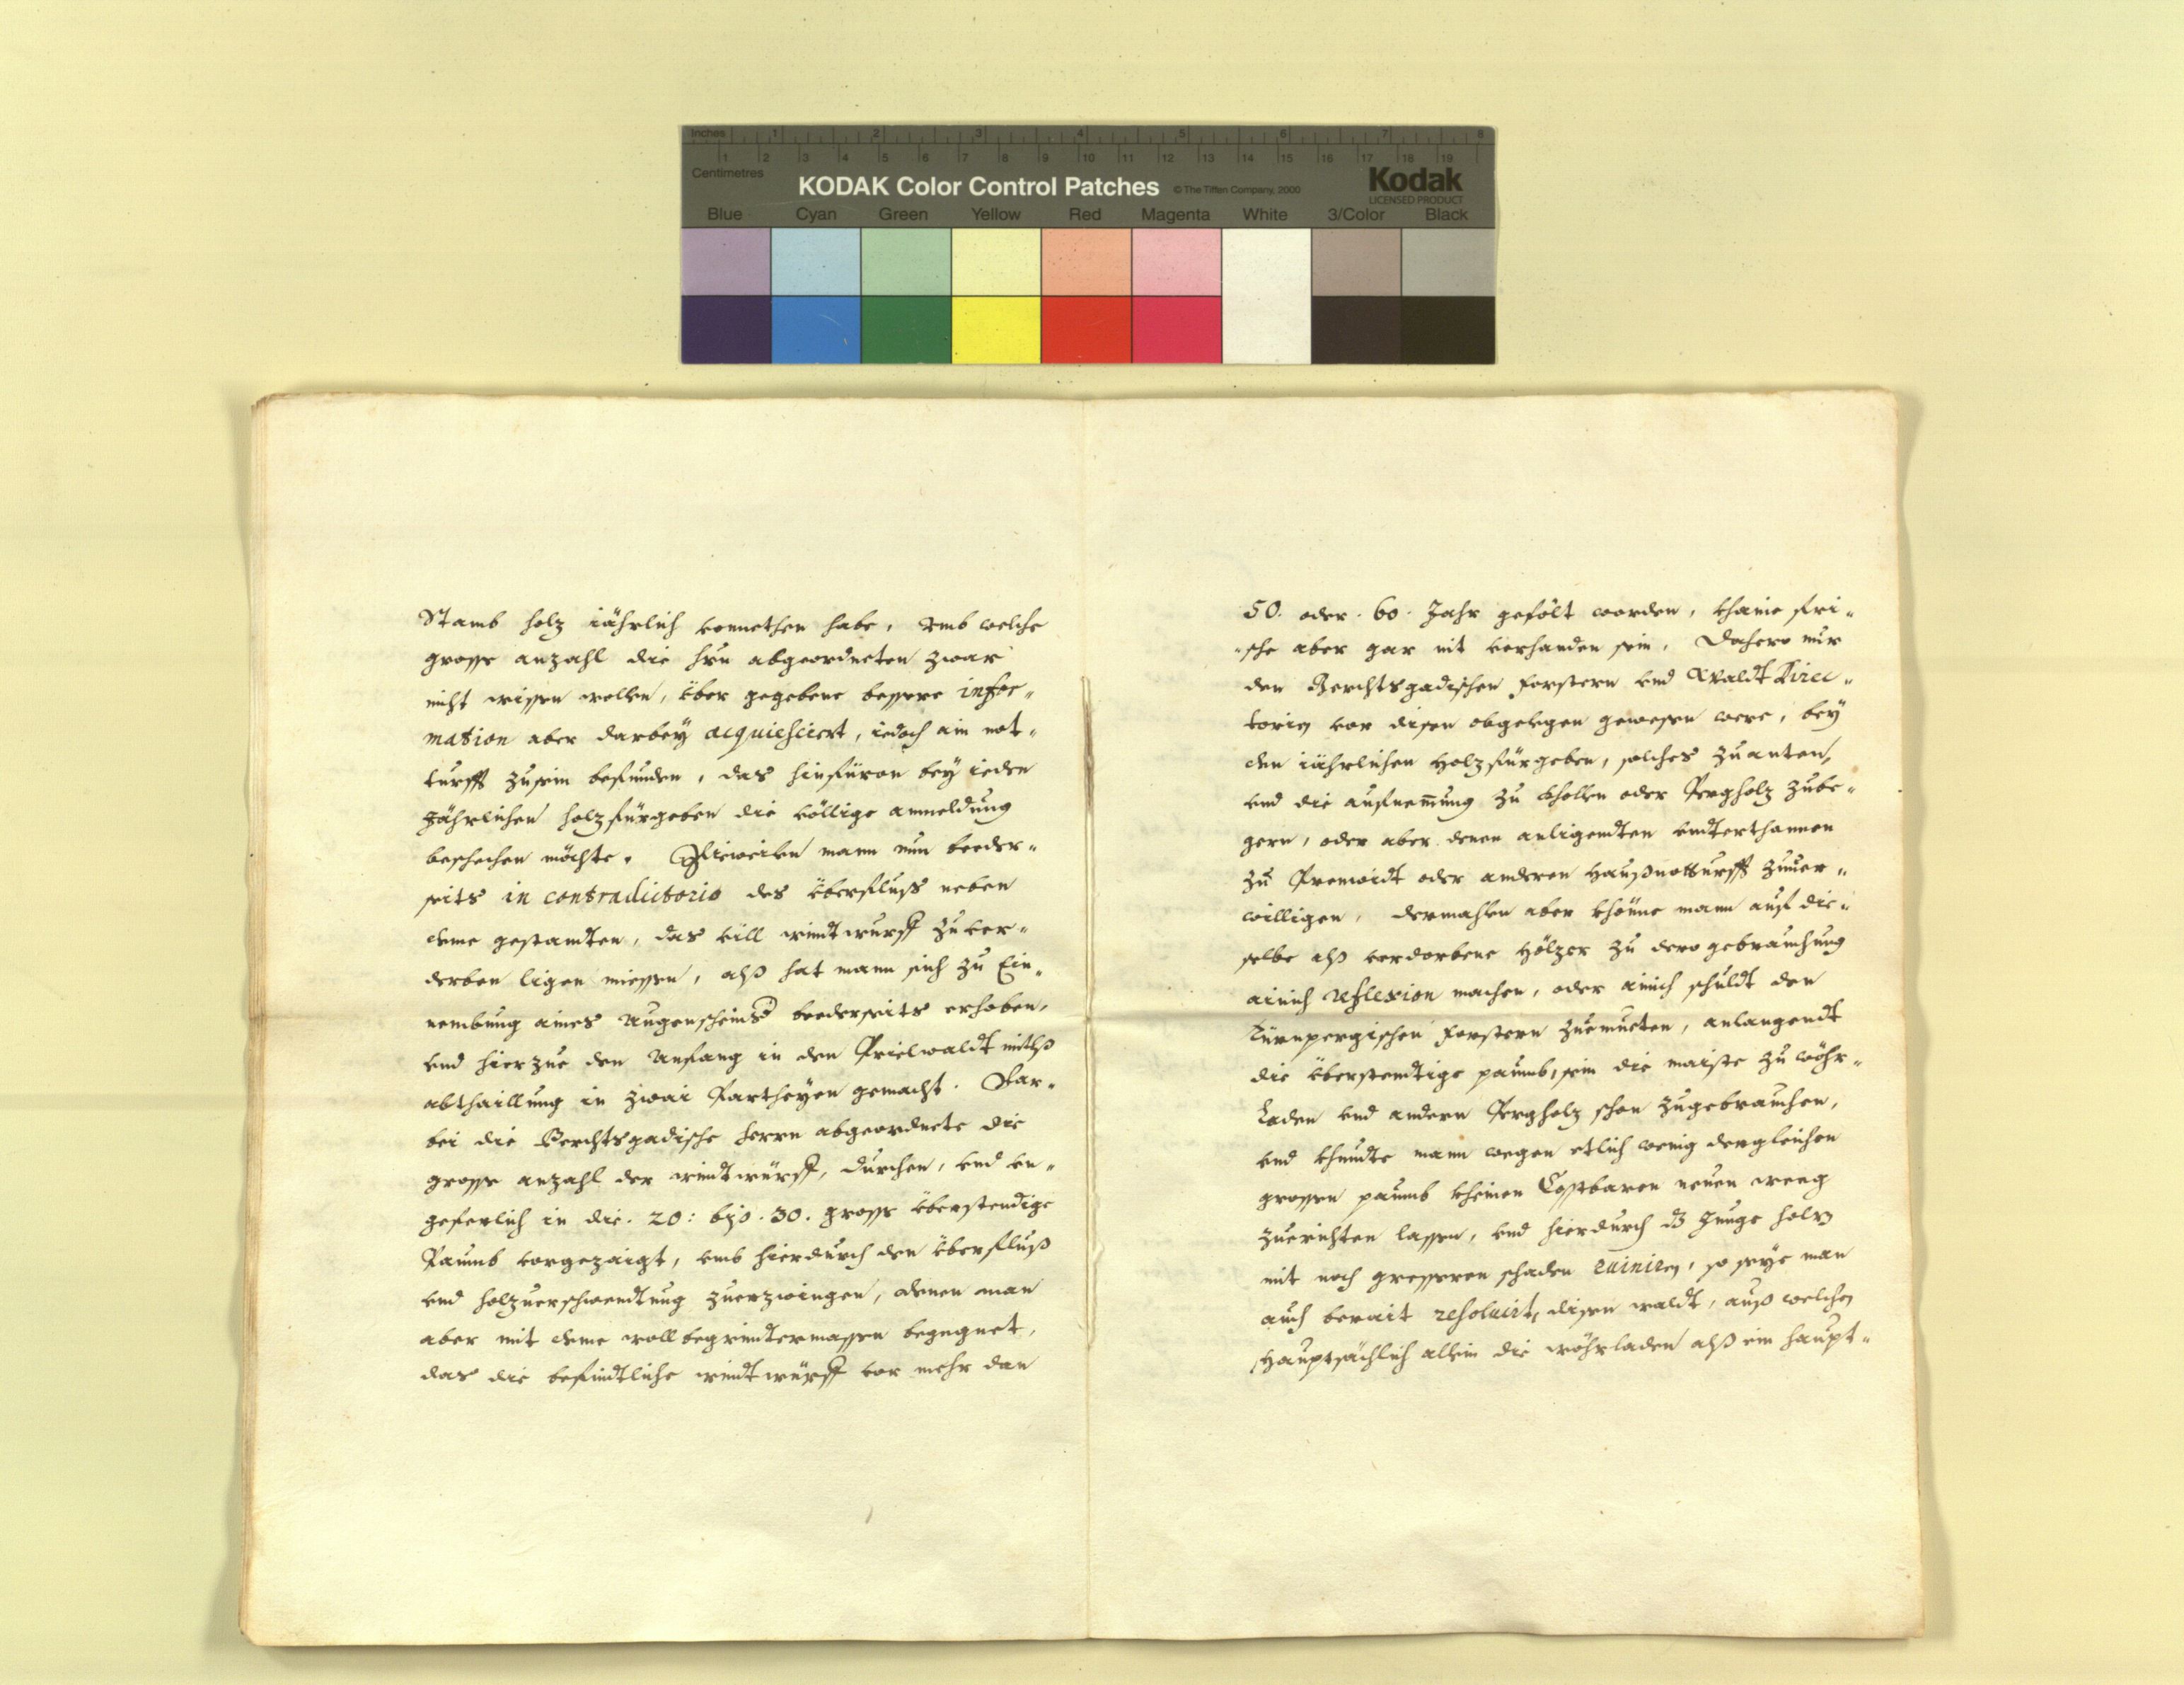 Inches 1 2 3 4 5 6 7 8
1 2 3 4 5 6 7 8 9 10 11 12 13 14 15 16 17 18 19
Centimetres
KODAK Color Control Patches © The Tiffen Company, 2000 Kodak
LICENSED PRODUCT
Blue Cyan Green Yellow Red Magenta White 3/Color Black
Stamb holz iährlich vonnethen habe, vmb welche
grosse anzahl die hrn abgeordneten zwar
nicht wissen wollen, über gegebene bessere infor„
mation aber darbey acquiesciert, iedoch ain not„
turfft zusein befunden, das hinfüron bey ieden
Jährlichen holzfürgeben die völlige anmeldung
beschechen möchte. Dieweilen mann nun beeder„
seits in contradictorio des überfluss neben
deme gestandten, das vill windtwürff zuver„
derben ligen miessen, alß hat mann sich zu Ein„
nembung aines Augenscheins beederseits erhoben,
vnd hierzue den Anfang in den Prielwaldt mitlß
abthaillung in zwai Partheyen gemacht. Dar„
bei die Berchtsgadische herrn abgeordnete die
grosse anzahl der windtwürff, durchen, vnd vn„
geferlich in die. 20: biß. 30. grosse überstendige
Paumb vorgezaigt, vmb hierdurch den überfluß
vnd holzuerschwendtung zuerzwingen, denen man
aber mit deme woll begrindtermassen begegnet,
das die befindtliche windtwürff vor mehr dan
50. oder. 60. Jahr gefölt worden, khaine fri„
„sche aber gar nit verhanden sein, Dahero nur
den Berchtsgadischen forstern vnd Waldt Direc„
toren vor disen obgelegen gewesen were, bey
den iährlichen Holzfürgeben, solches zuanten,
vnd die aufnemung zu khollen oder Pergholz zube„
gern, oder aber denen anligendten vndterthannen
zu Prenwidt oder anderen Haußnotturfft zuuer„
willigen, dermahlen aber khönne mann auf die„
selbe alß verdorbene Hölzer zu dero gebrauchung
ainich reflexion machen, oder ainich schuldt den
Türnpergischen forstern zuemueten, anlangendt
die überstendige paumb, sein die maiste zu wöhr„
Laden vnd andern Pergholz schon zugebrauchen,
vnd khundte mann wegen etlich wenig dergleichen
grossen paumb kheinen Costbaren neuen weeg
zuerichten lassen, vnd hierdurch dz Junge holz
mit noch gresseren schaden ruiniren, so seye man
auch berait resoluirt, disen waldt, auß welchen
Hauptsächlich allein die wöhrladen alß ein haupt„